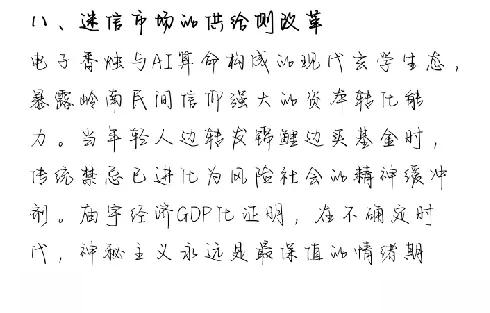 八、迷信市场的供给侧改革
电子香烛与AI算命构成的现代玄学生态，
暴露岭南民间信仰强大的资本转化能
力。当年轻人边转发锦鲤边买基金时，
传统禁忌已进化为风险社会的精神缓冲
剂。庙宇经济GDP化证明，在不确定时
代，神秘主义永远是最保值的情绪期